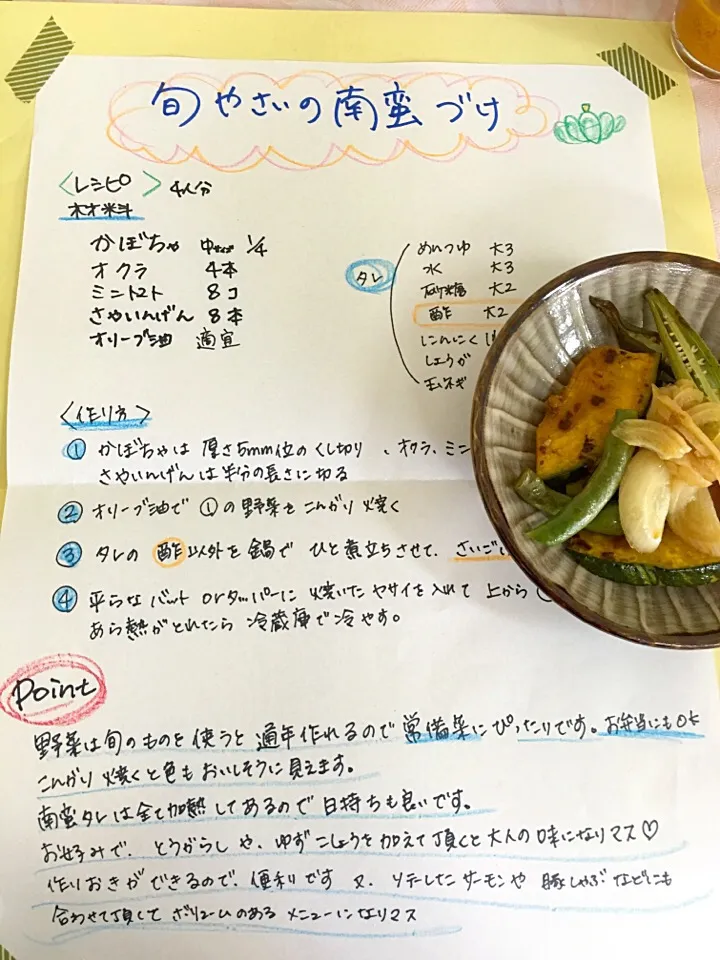 旬やさいの南蛮づけ
〈レシピ〉 4人分
材料
かぼちゃ 中サイズ 1/4
オクラ 4本
ミニトマト 8コ
さやいんげん 8本
オリーブ油 適宜
タレ
めんつゆ 大3
水 大3
砂糖 大2
酢 大2
にんにく
しょうが
玉ネギ
〈作り方〉
① かぼちゃは厚さ5mm位のくし切り、オクラ、ミニ
さやいんげんは半分の長さに切る
② オリーブ油で①の野菜をこんがり焼く
③ タレの酢以外を鍋でひと煮立ちさせて、さいご
④ 平らなバットorタッパーに焼いたヤサイを入れて上から
あら熱がとれたら冷蔵庫で冷やす。
Point
野菜は旬のものを使うと通年作れるので常備菜にぴったりです。お弁当にもOK
こんがり焼くと色もおいしそうに見えます。
南蛮タレは全て加熱してあるので日持ちも良いです。
お好みで、とうがらしや、ゆずこしょうを加えて頂くと大人の味になりマス♡
作りおきができるので、便利です 又、ソテーしたサーモンや 豚しゃぶなどにも
合わせて頂して ボリュームのあるメニューになりマス